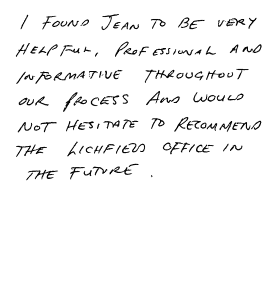 I FOUND JEAN TO BE VERY
HELPFUL, PROFESSIONAL AND
INFORMATIVE THROUGHOUT
OUR PROCESS AND WOULD
NOT HESITATE TO RECOMMEND
THE LICHFIELD OFFICE IN
THE FUTURE.